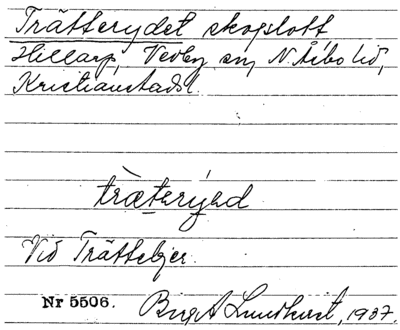 Trätterydet skogslott
Hillarp, Vedby sn, N. Åsbo hd,
Kristianstads l.
trætərýəd
Vid Trättebjer.
Nr 5506. Birgit Lundkvist, 1937.